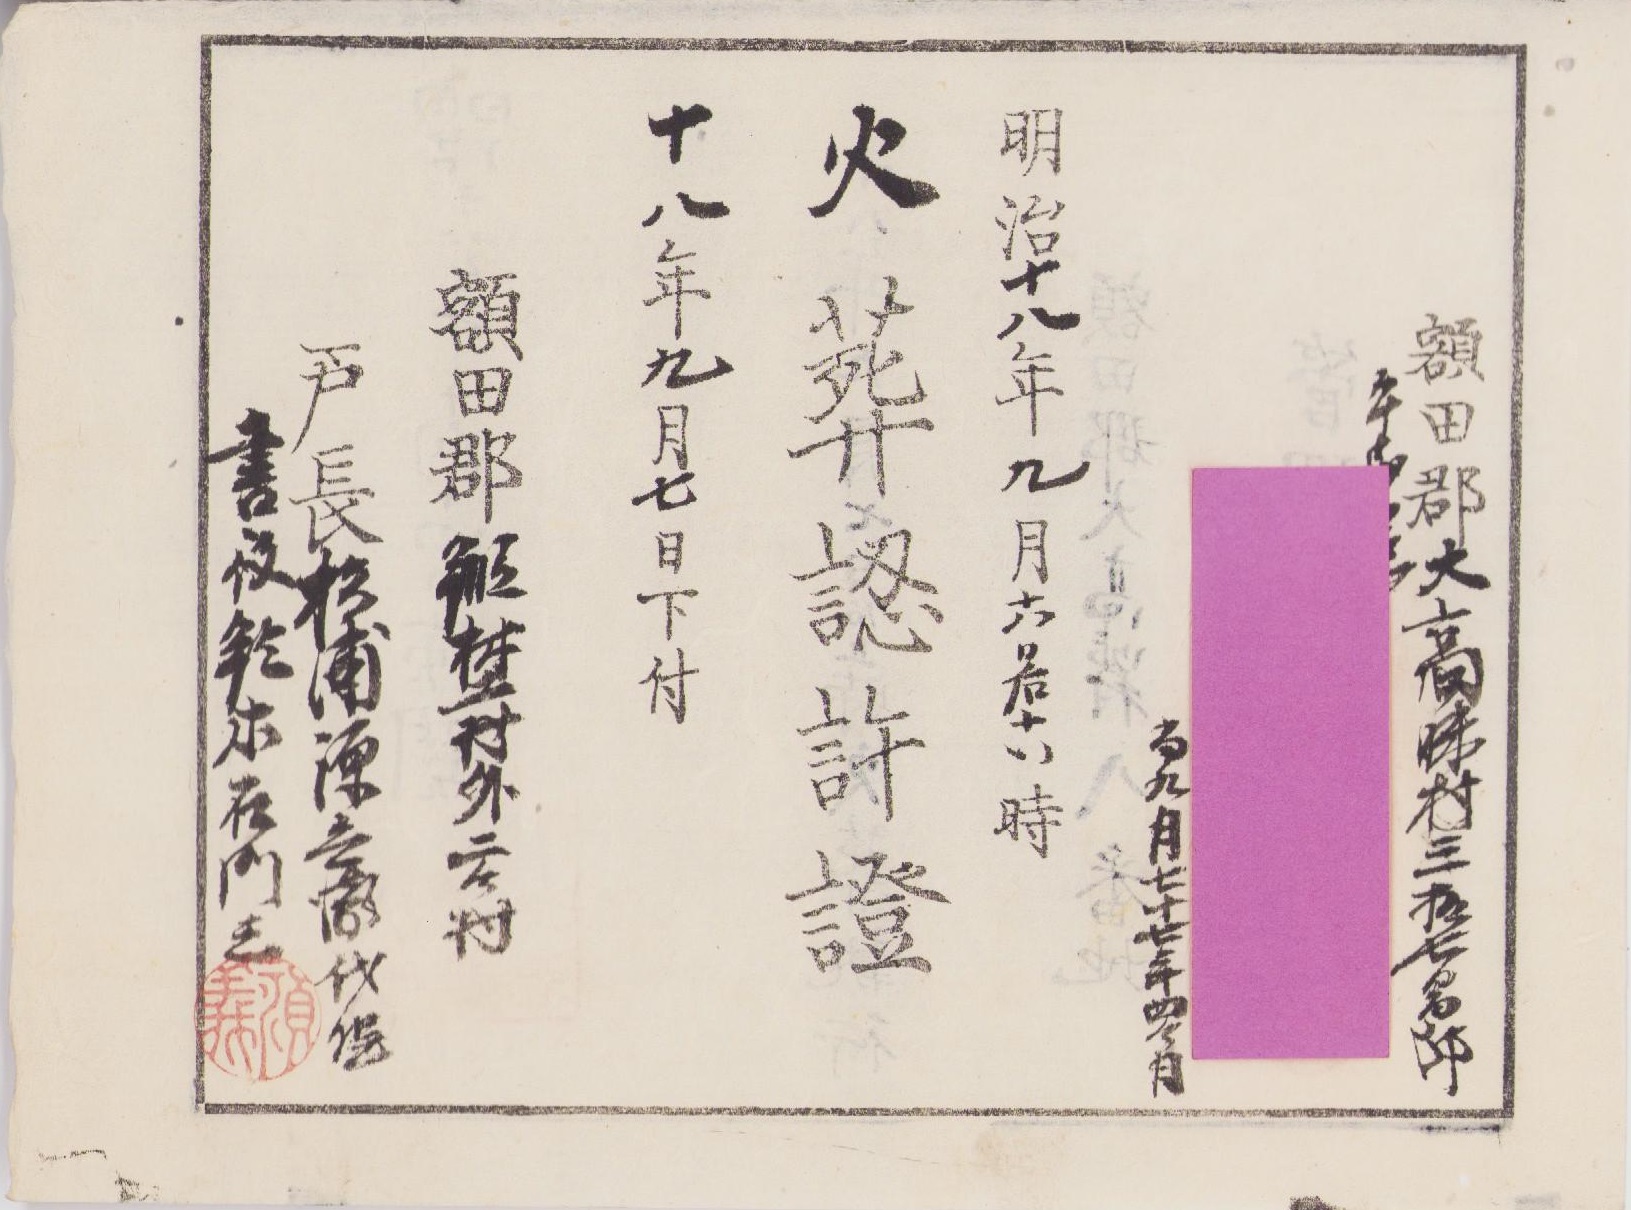 額田郡大高味村三拾七番邸
平民
当九月七十七年四ヶ月
明治十八年九月六日若十八時
火葬認許證
十八年九月七日下付
額田郡舩埜村外二ケ村
戸長松浦源立齋代理
書役鈴木右門三